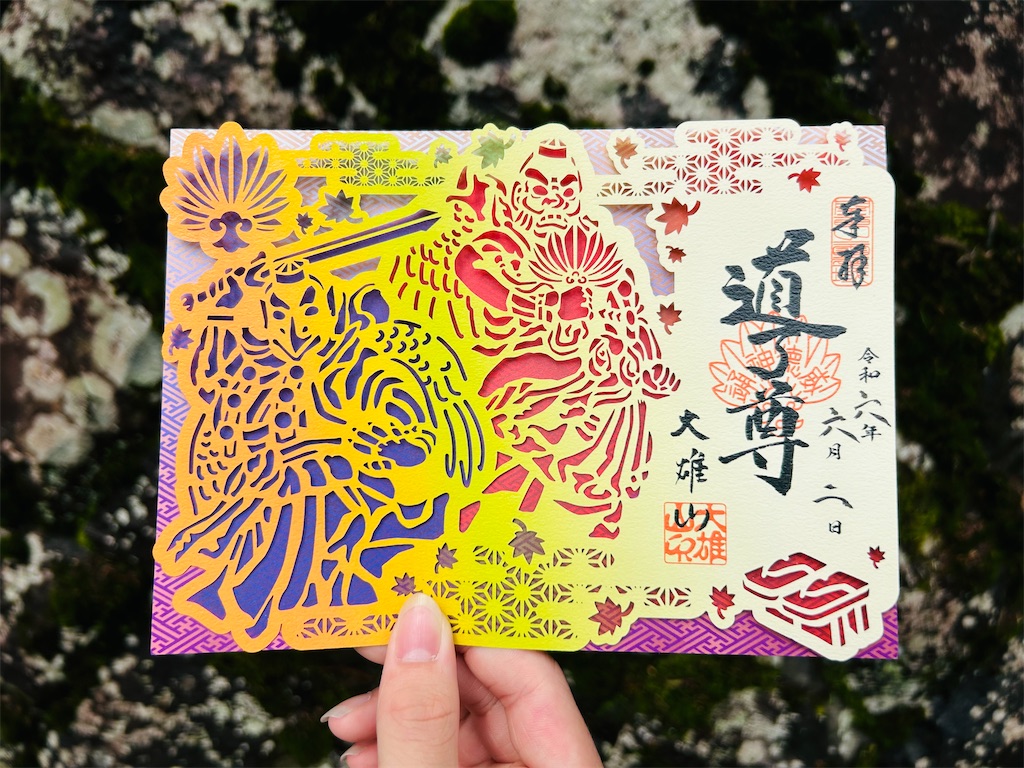 奉拝
令和六年
六月二日
道了尊
大雄山
大雄
山印